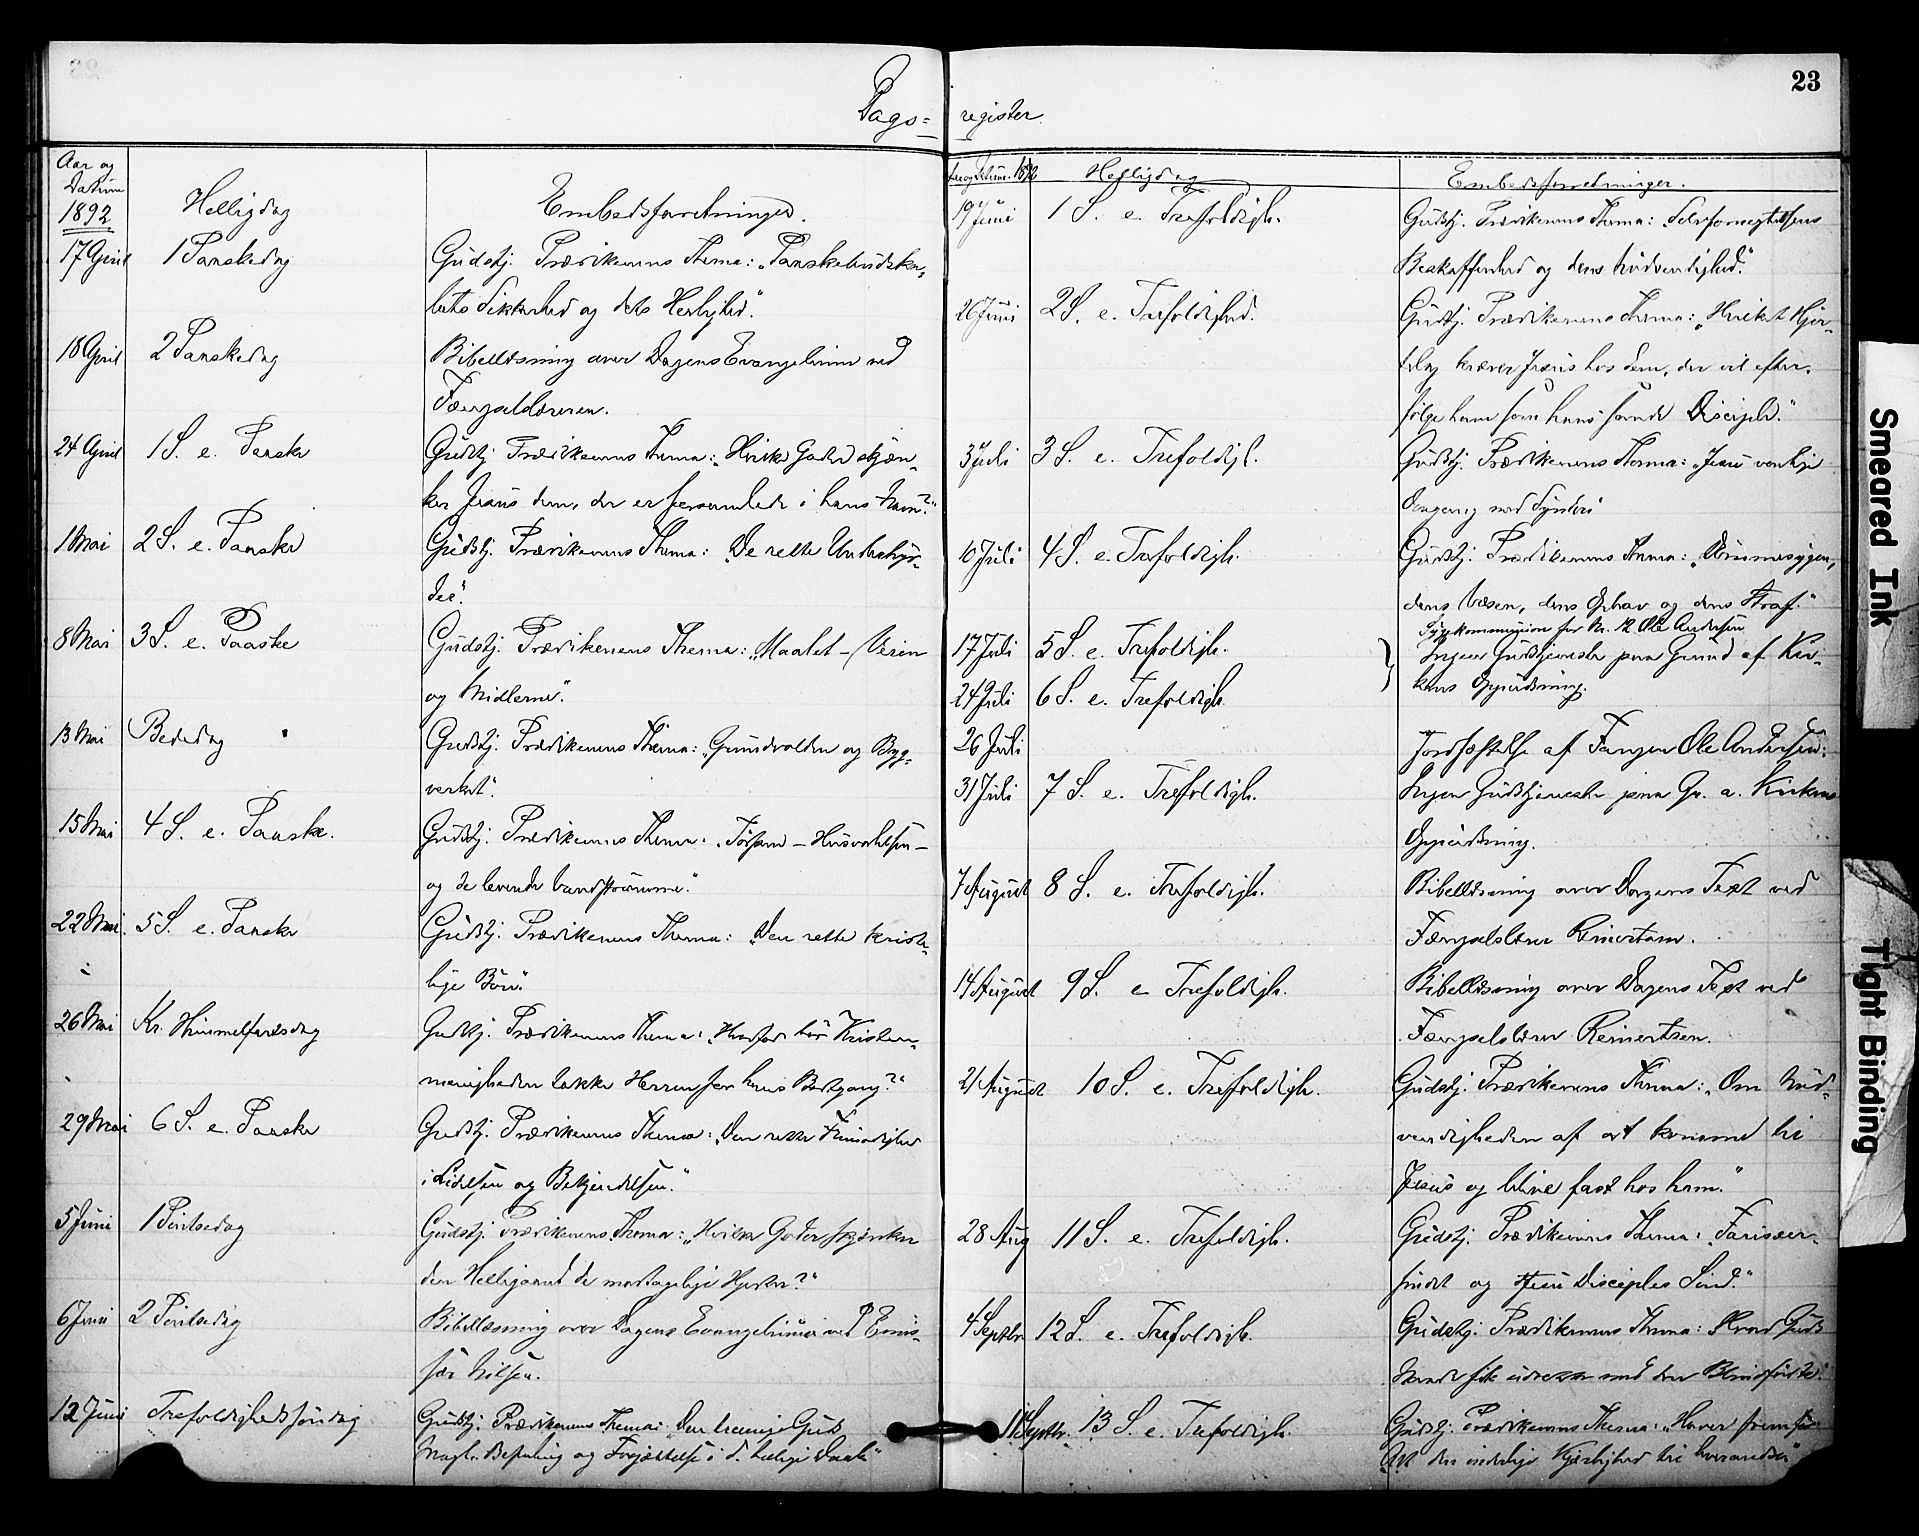 Dags=
Aar og
Datum
1892
Helligdag
Embedsforretninger.
17 April 1 Paaskedag Gudstj. Prædikenens Thema: „Paaskebudska-
bets Sikkerhed og dets Herlighed."
18 April 2 Paaskedag Bibellæsning over Dagens Evangelium ved
Fængselslæreren.
24 April 1 S. e. Paaske Gudstj. Prædikenens Thema: „Hvilke Goder skjæn-
ker Jesus dem, der er forsamlede i hans Navn?"
1 Mai 2 S. e. Paaske Gudstj. Prædikenens Thema: „De rette Underhyr-
der".
8 Mai 3 S. e. Paaske Gudstj. Prædikenens Thema: „Maalet – Veien
og Midlerne".
13 Mai Bededag Gudstj. Prædikenens Thema: „Grundvolden og Byg-
verket".
15 Mai 4 S. e. Paaske. Gudstj. Prædikenens Thema: „Tørsten – Husvalelsen –
og de levende Vandstrømme."
22 Mai. 5 S. e. Paaske Gudstj. Prædikenens Thema: „Den rette krist-
lige Bøn."
26 Mai Kr. Himmelfartsdag Gudstj. Prædikenens Thema: „Hvorfor bør Kristen-
menigheden takke Herren for hans Bortgang?"
29 Mai 6 S. e. Paaske Gudstj. Prædikenens Thema: „Den rette Frimodighed
i Lidelsen og Bekjendelsen."
5 Juni 1 Pintsedag Gudstj. Prædikenens Thema: „Hvilke Goder skjænker
den Helligaand de modtagelige Hjerter?"
6 Juni 2 Pintsedag Bibellæsning over Dagens Evangelium ved Emis-
sær Nilsen.
12 Juni Trefoldighedssøndag Gudstj. Prædikenens Thema: „Den treenige Guds
og i d. hellige Daab"
23
register
Aar og Datum. 1892 Helligdag Embedsforretninger.
19 Juni 1 S. e. Trefoldigh. Gudstj. Prædikenens Thema: „Selvfornegtelsens
Beskaffenhed og dens Nødvendighed."
26 Juni 2 S. e. Trefoldighed. Gudstj. Prædikenens Thema: „Hvilket Hjer-
telag kræver Jesus hos dem, der vil efter-
følge ham som hans sande Disciple."
3 Juli 3 S. e. Trefoldigh. Gudstj. Prædikenens Thema: „Jesu venlige
Omgang med Syndere
10 Juli 4 S. e. Trefoldigh. Gudstj. Prædikenens Thema: „Dømmesygen,
dens Væsen, dens Ophav og dens Straf."
Sygekommunion for No. 12 Ole Andersen
17 Juli 5 S. e. Trefoldigh. Ingen Gudstjeneste paa Grund af Kir-
24 Juli 6 S. e. Trefoldigh. kens Opudsning.
26 Juli Jordfæstelse af Fangen Ole Andersen.
31 Juli 7 S. e. Trefoldigh. Ingen Gudstjeneste paa Gr. a. Kirkens
Opudsning.
7 August 8 S. e. Trefoldigh. Bibellæsning over Dagens Text ved
Fængselslærer Reinertsen.
14 August 9 S. e Trefoldigh. Bibellæsning over Dagens Text ved
Fængselslærer Reinertsen.
21 August 10 S. e. Trefoldigh. Gudstj. Prædikenens Thema: „Om Nød-
vendigheden af at komme til
Jesus og blive fast hos ham."
28 Aug 11 S. e. Trefoldigh. Gudstj. Prædikenens Thema: „Farisæer-
sindet og Jesu Disciples Sind."
4 Septbr 12 S. e. Trefoldigh. Gudstj. Prædikenens Thema: Hvad Guds
Naade fik udrettet med den Blindfødte.
11 Septbr. 13 S. e. Trefoldigh. Gudstj. Prædikenens Thema: „Haver fremfor
Alt den inderlige Kjærlighed til hverandre"
Smeared Ink
Tight Binding